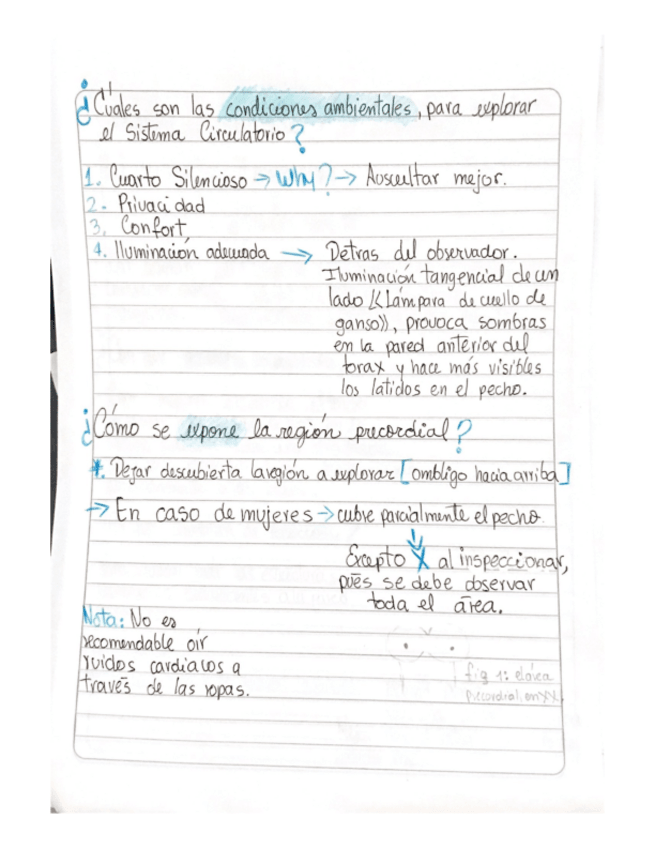 ¿Cúales son las condiciones ambientales, para explorar
el Sistema Circulatorio?
1. Cuarto Silencioso → Why? → Auscultar mejor.
2. Privacidad
3. Confort
4. Iluminación adecuada → Detras del observador.
Iluminación tangencial de un
lado ((Lámpara de cuello de
ganso)), provoca sombras
en la pared anterior del
torax y hace más visibles
los latidos en el pecho.
¿Cómo se expone la región precordial?
*. Dejar descubierta la región a explorar [ombligo hacia arriba]
→ En caso de mujeres → cubre parcialmente el pecho.
Excepto X al inspeccionar,
pués se debe observar
toda el área.
Nota: No es
recomendable oír
ruidos cardiacos a
través de las ropas.
fig 1: el área
Precordial, en